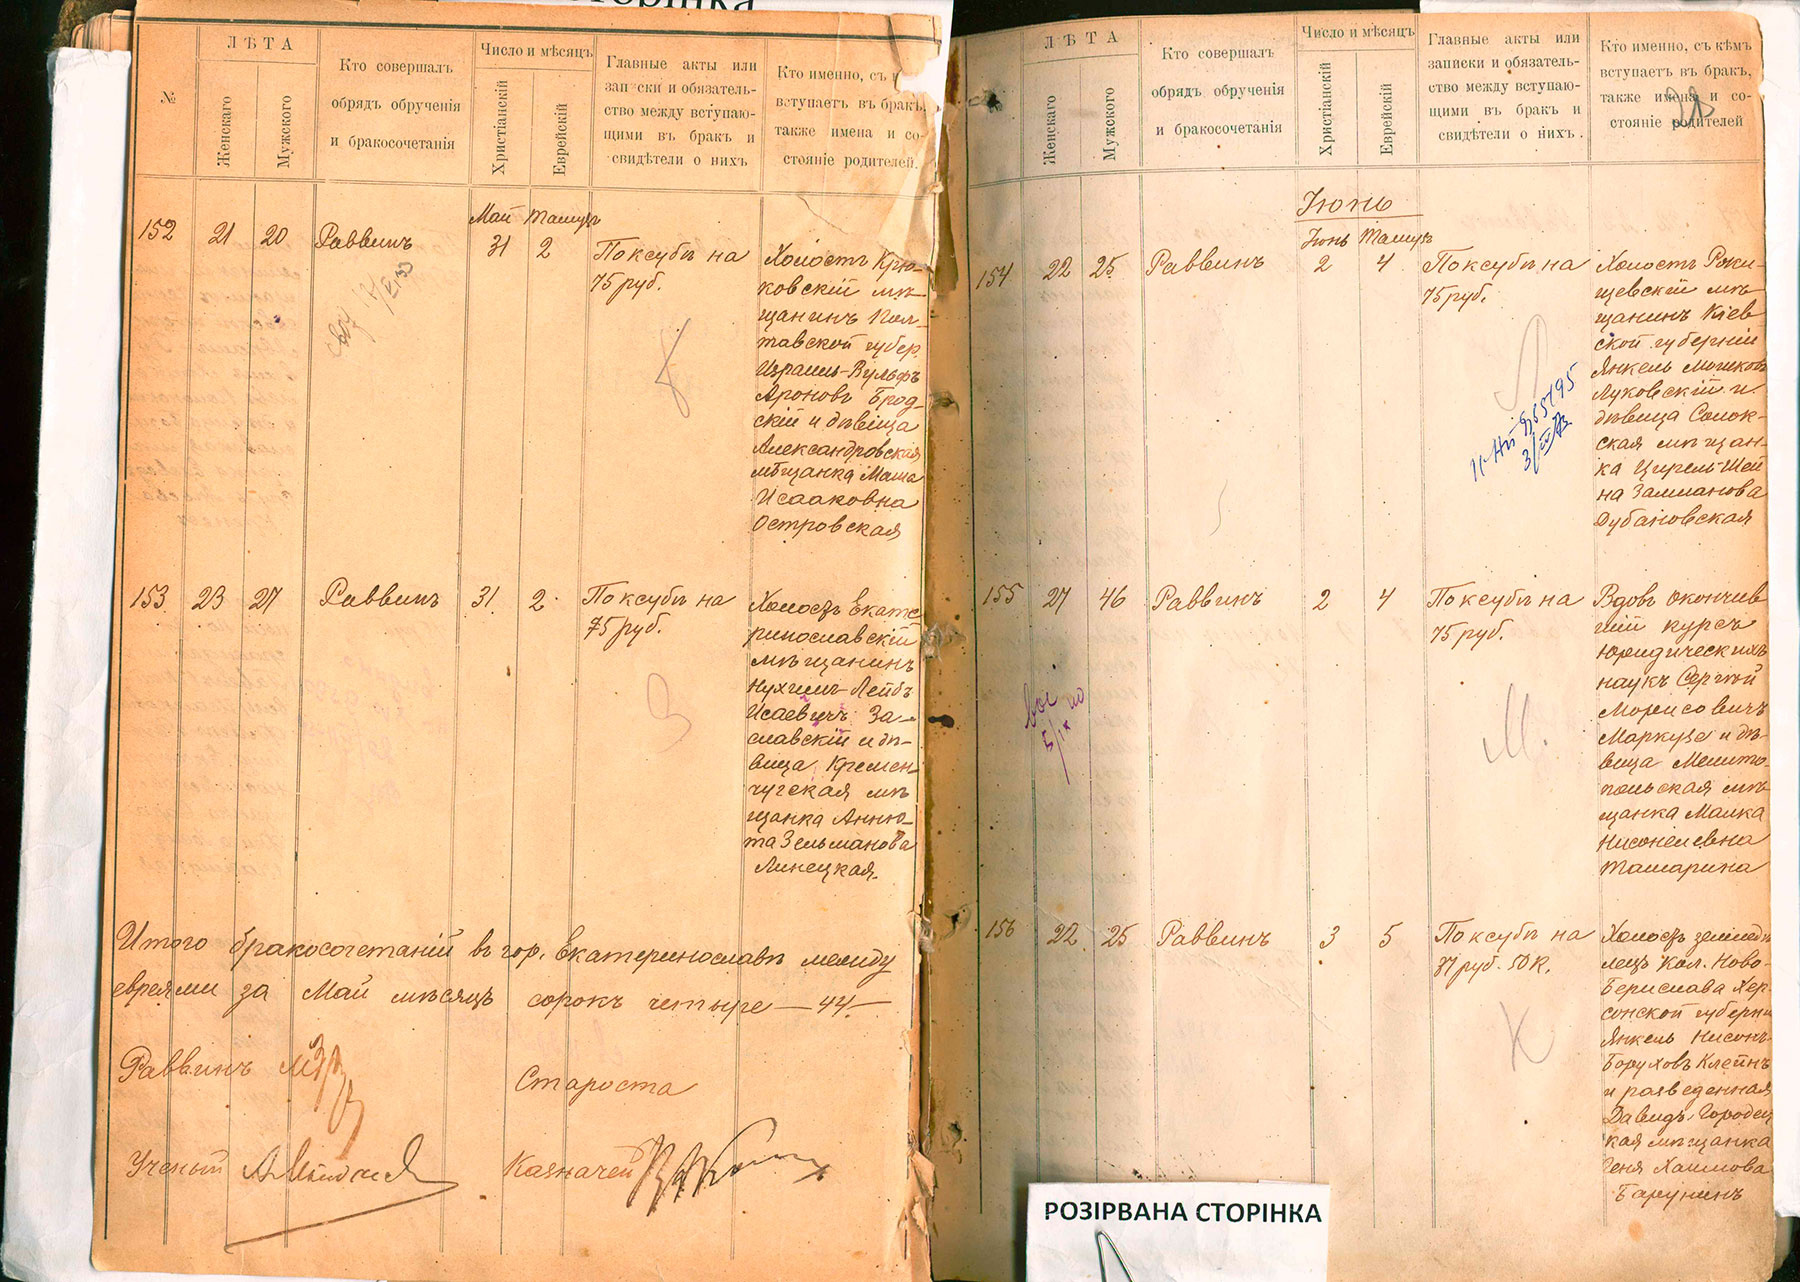 сторінка
№
ЛѢТА
Женскаго
Мужского
Кто совершалъ
обрядъ обрученія
и бракосочетанія
Число и мѣсяцъ
Христіанскій
Еврейскій
Главные акты или
записки и обязатель-
ство между вступаю-
щими въ бракъ и
свидѣтели о нихъ
Кто именно, съ
вступаетъ въ бракъ,
также имена и со-
стояніе родителей.
Май Тамузъ
152 21 20 Раввинъ 31 2 По ксубѣ на
75 руб.
Холостъ Крю-
ковскій мѣ-
щанинъ Пол-
тавской губер.
Израиль-Вульфъ
Ароновъ Брод-
скій и дѣвица
Александровская
мѣщанка Маша
Исааковна
Островская
153 23 27 Раввинъ 31 2 По ксубѣ на
75 руб.
З
Холостъ Екате
ринославскій
мѣщанинъ
Нухимъ-Лейбъ
Исаевичъ За-
славскій и дѣ-
вица Кремен-
чугская мѣ
щанка Анню-
та Зельманова
Линецкая.
Итого бракосочетаній въ гор. Екатеринославѣ между
евреями за Май мѣсяцъ сорокъ четыре — 44 —
Раввинъ
Староста
Ученый
Казначей
ЛѢТА
Женскаго
Мужского
Кто совершалъ
обрядъ обрученія
и бракосочетанія
Число и мѣсяцъ
Христіанскій
Еврейскій
Главные акты или
записки и обязатель-
ство между вступаю-
щими въ бракъ и
свидѣтели о нихъ.
Кто именно, съ кѣмъ
вступаетъ въ бракъ,
также имена и со-
стояніе родителей
Іюнь
Іюнь Тамузъ
154 22 25 Раввинъ 2 4 По ксубѣ на
75 руб.
Л
Холостъ Роки-
щевскій мѣ
щанинъ Кіев
ской губерніи
Янкель Мошковъ
Луковскій и
дѣвица Солок-
ская мѣщан-
ка Цирель-Шей
на Залманова
Дубановская
155 27 46 Раввинъ 2 4 По ксубѣ на
75 руб.
М.
Вдовъ окончив
шій курсъ
юридическихъ
наукъ Сергѣй
Морисовичъ
Маркузе и дѣ-
вица Мелито-
польская мѣ-
щанка Малка
Нисонелевна
Тамарина
156 22 25 Раввинъ 3 5 По ксубѣ на
77 руб. 50 к.
К
Холостъ землед
лецъ кол. Ново-
Берислава Хер
сонской губерн
Янкель Нисонъ-
Боруховъ Клейнъ
и разведенная
Давидъ-Городец
кая мѣщанка
Геня Хаимова
Барунинъ
РОЗІРВАНА СТОРІНКА